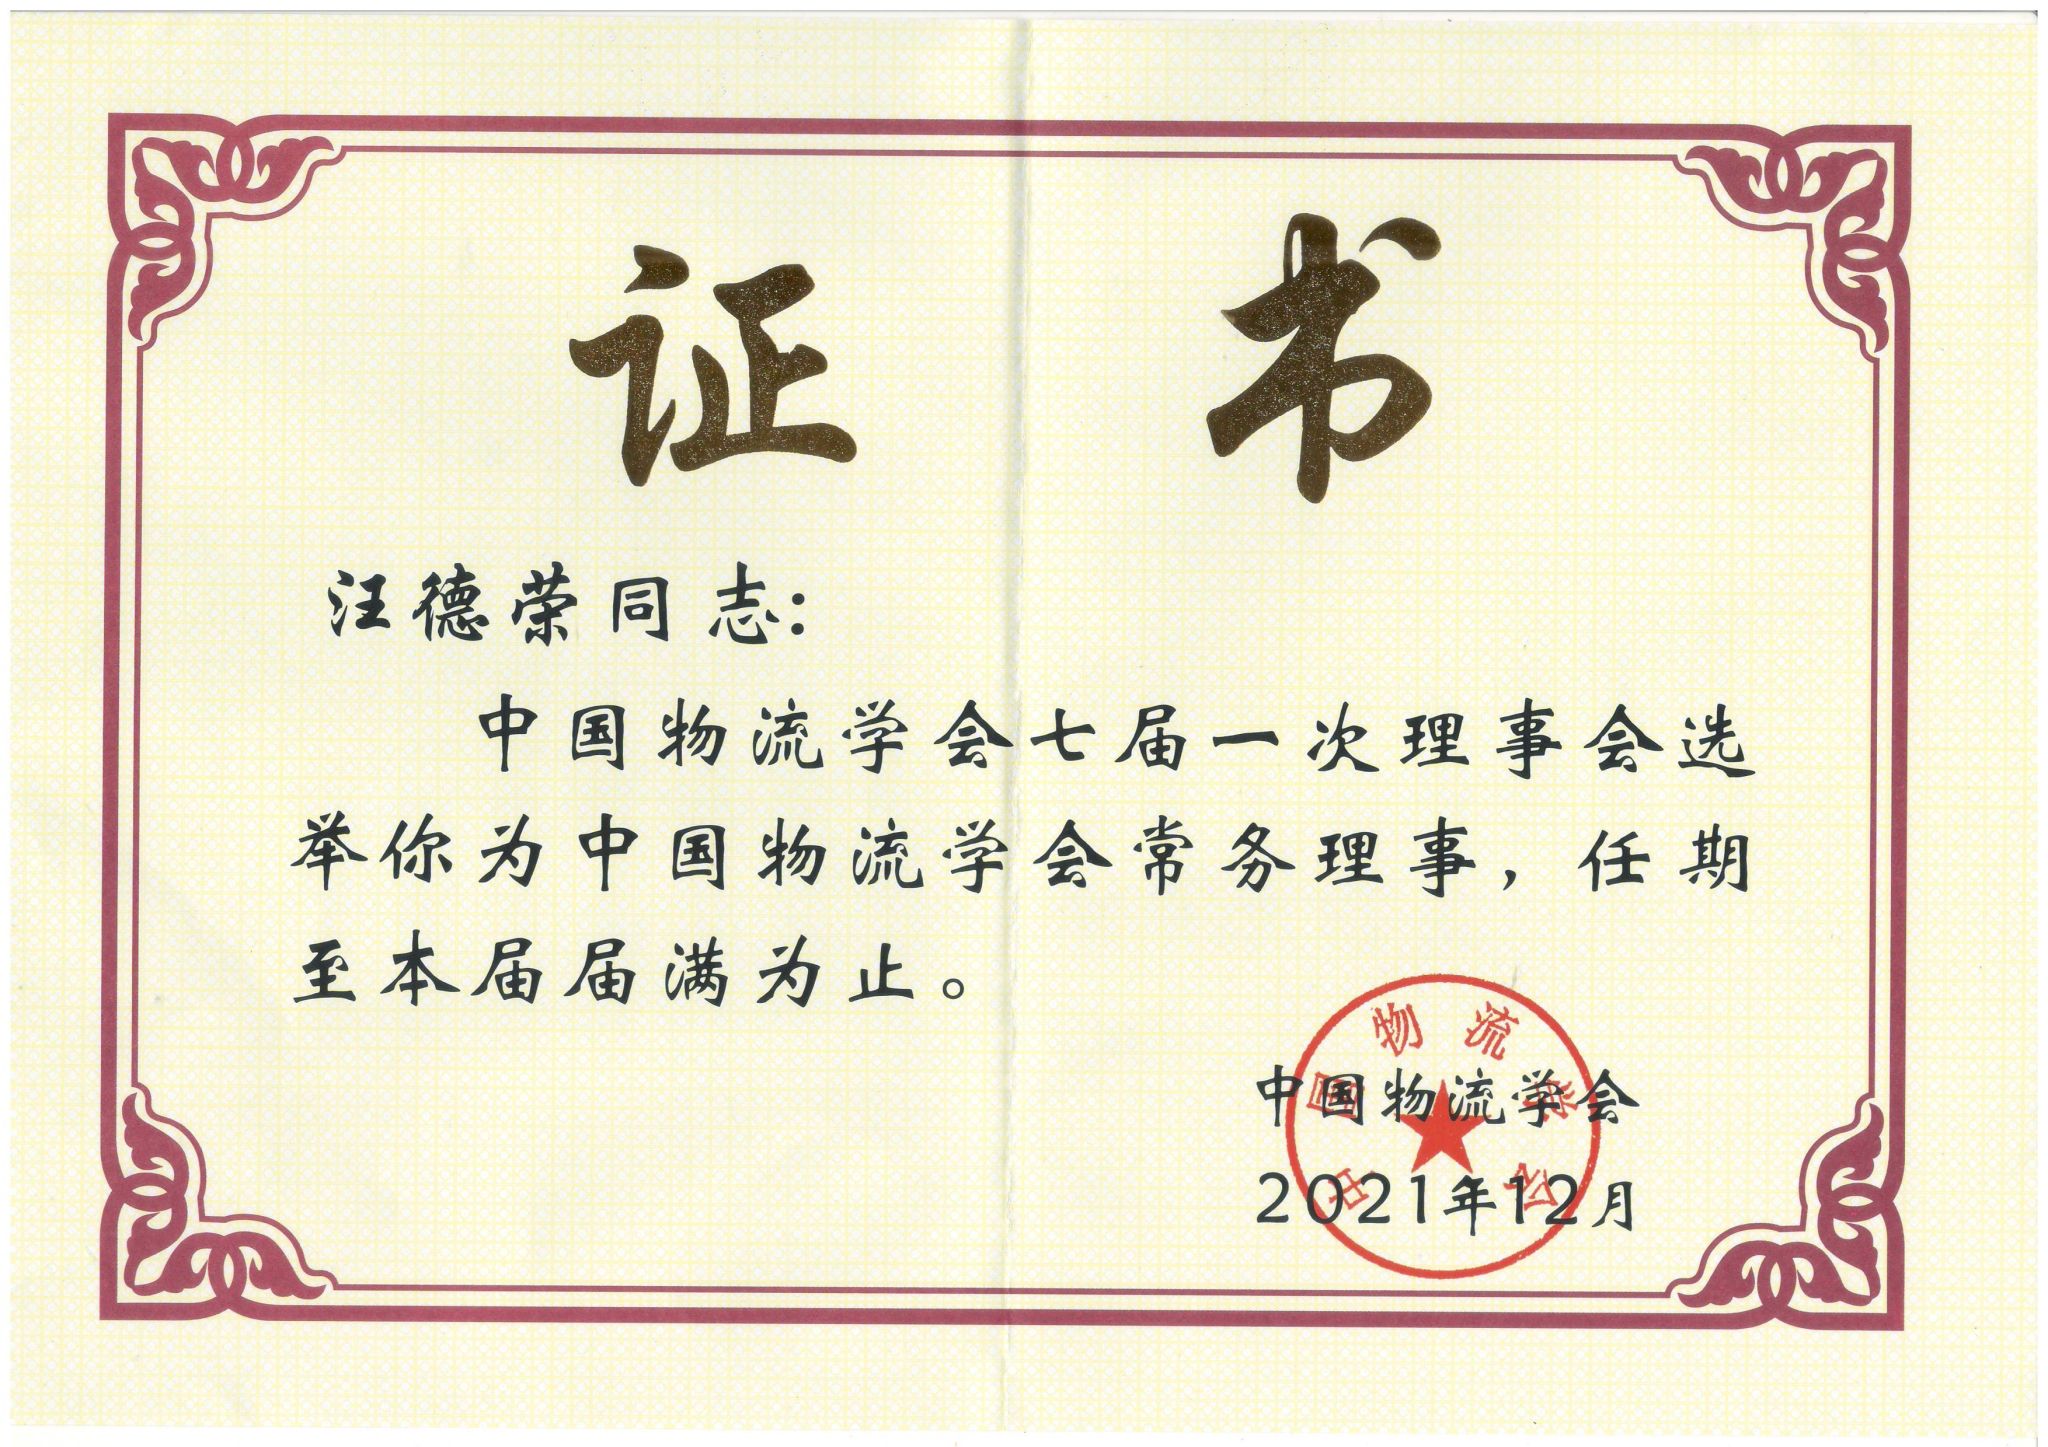 证书
汪德荣同志:
中国物流学会七届一次理事会选
举你为中国物流学会常务理事，任期
至本届届满为止。
中国物流学会
中国物流学会
2021年12月